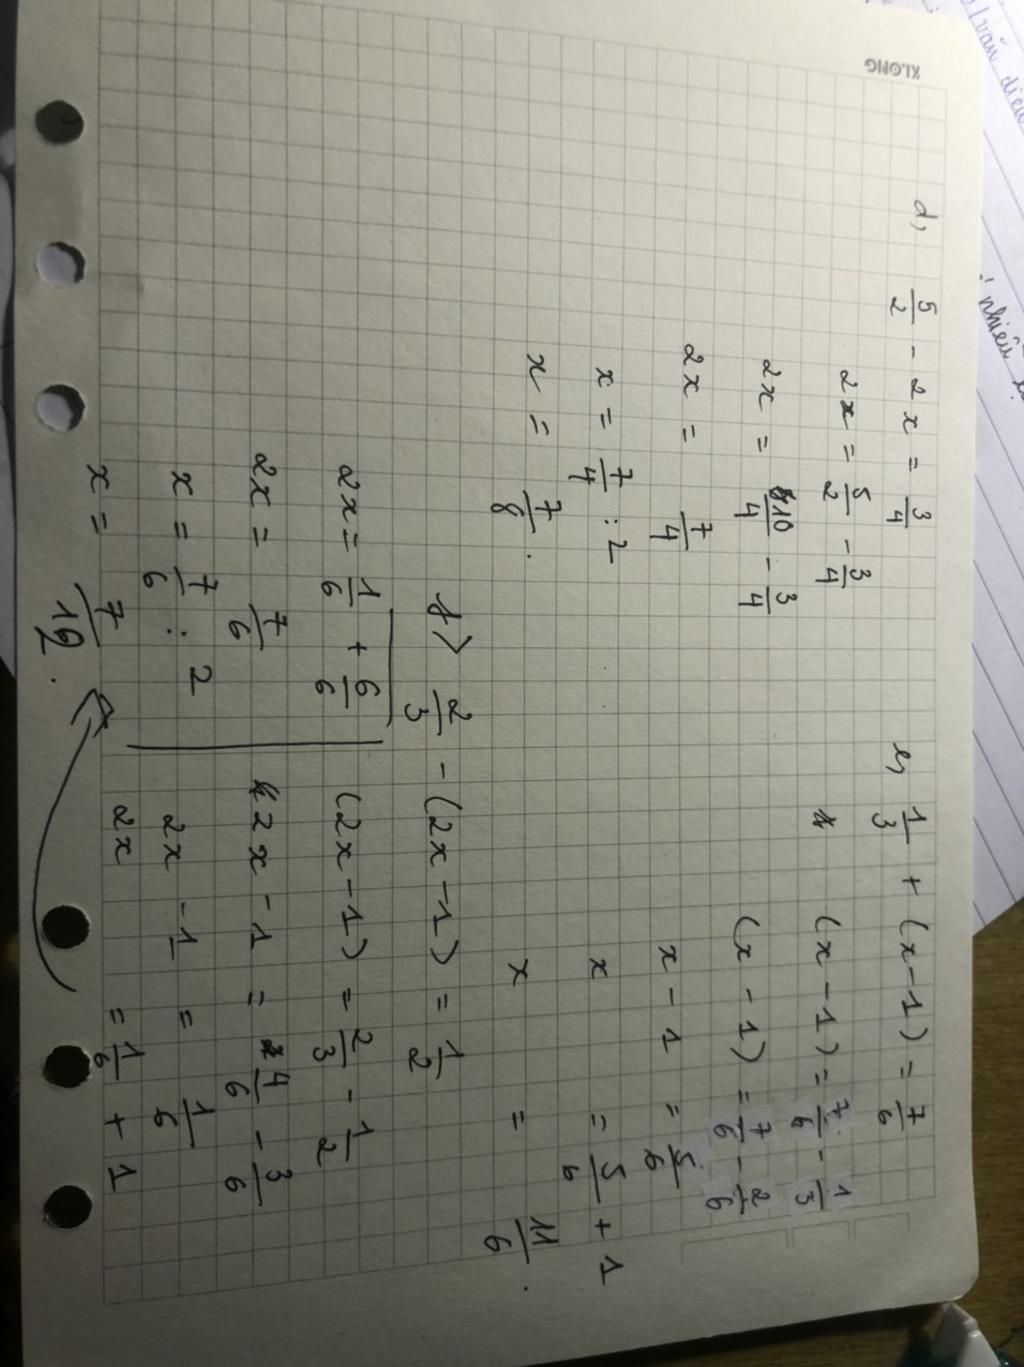 KLONG
d, 5/2 - 2x = 3/4
2x = 5/2 - 3/4
2x = 10/4 - 3/4
2x = 7/4
x = 7/4 : 2
x = 7/8 .
e, 1/3 + (x - 1) = 7/6
(x - 1) = 7/6 - 1/3
(x - 1) = 7/6 - 2/6
x - 1 = 5/6
x = 5/6 + 1
x = 11/6 .
f> 2/3 - (2x - 1) = 1/2
(2x - 1) = 2/3 - 1/2
2x - 1 = 4/6 - 3/6
2x - 1 = 1/6
2x = 1/6 + 1
2x = 1/6 + 6/6
2x = 7/6
x = 7/6 : 2
x = 7/12 .
văn
nhiêu